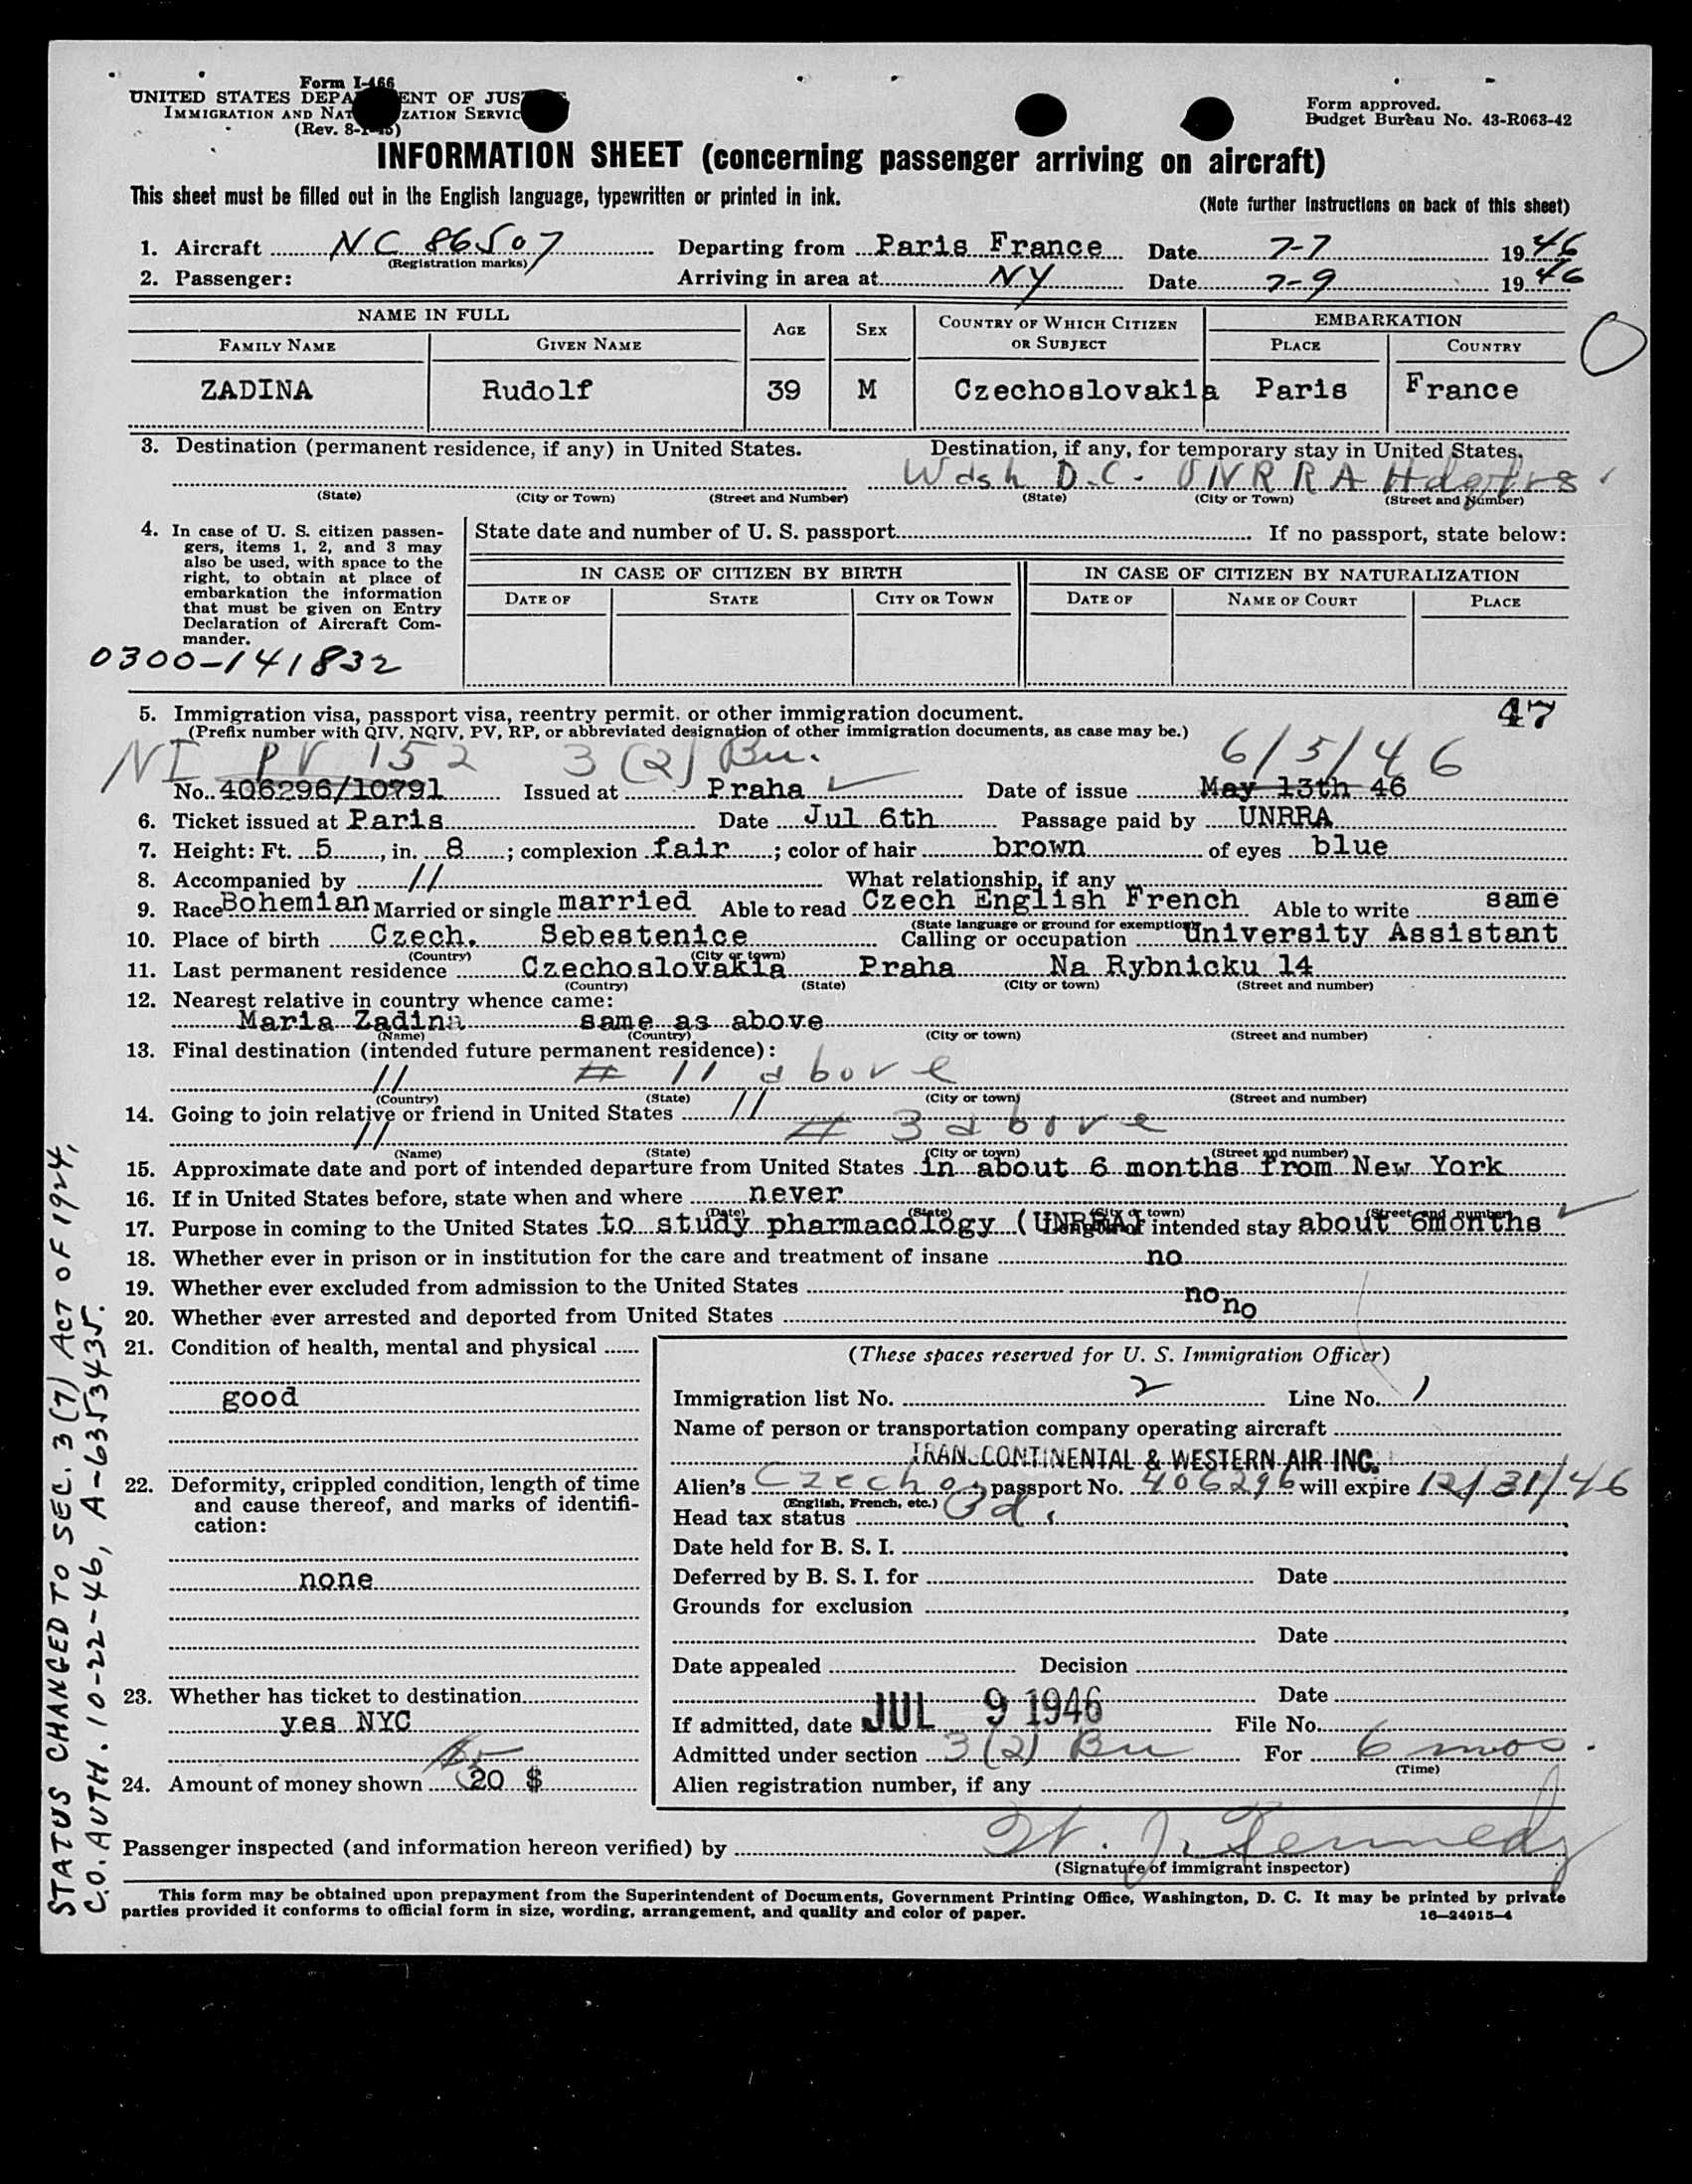 Form I-466
UNITED STATES DEPA ENT OF JUS
IMMIGRATION AND NAT ZATION SERVIC
(Rev. 8-1-45)
Form approved.
Budget Bureau No. 43-R063-42
INFORMATION SHEET (concerning passenger arriving on aircraft)
This sheet must be filled out in the English language, typewritten or printed in ink.
(Note further instructions on back of this sheet)
1. Aircraft NC 86507 Departing from Paris France Date 7-7 1946
(Registration marks)
2. Passenger: Arriving in area at NY Date 7-9 1946
NAME IN FULL AGE SEX COUNTRY OF WHICH CITIZEN OR SUBJECT EMBARKATION
FAMILY NAME GIVEN NAME PLACE COUNTRY
ZADINA Rudolf 39 M Czechoslovakia Paris France
3. Destination (permanent residence, if any) in United States. Destination, if any, for temporary stay in United States.
Wash D.C. UNRRA Hdqtrs
(State) (City or Town) (Street and Number) (State) (City or Town) (Street and Number)
4. In case of U. S. citizen passen-
gers, items 1, 2, and 3 may
also be used, with space to the
right, to obtain at place of
embarkation the information
that must be given on Entry
Declaration of Aircraft Com-
mander.
State date and number of U. S. passport If no passport, state below:
IN CASE OF CITIZEN BY BIRTH IN CASE OF CITIZEN BY NATURALIZATION
DATE OF STATE CITY OR TOWN DATE OF NAME OF COURT PLACE
0300-141832
47
5. Immigration visa, passport visa, reentry permit. or other immigration document.
(Prefix number with QIV, NQIV, PV, RP, or abbreviated designation of other immigration documents, as case may be.)
NI PV 152 3(2) Bu. 6/5/46
No. 406296/10791 Issued at Praha Date of issue May 13th 46
6. Ticket issued at Paris Date Jul 6th Passage paid by UNRRA
7. Height: Ft. 5, in. 8; complexion fair; color of hair brown of eyes blue
8. Accompanied by // What relationship, if any
9. Race Bohemian Married or single married Able to read Czech English French Able to write same
(State language or ground for exemption)
10. Place of birth Czech. Sebestenice Calling or occupation University Assistant
(Country) (City or town)
11. Last permanent residence Czechoslovakia Praha Na Rybnicku 14
(Country) (State) (City or town) (Street and number)
12. Nearest relative in country whence came:
Maria Zadina same as above
(Name) (Country) (City or town) (Street and number)
13. Final destination (intended future permanent residence):
// # 11 above
(Country) (State) (City or town) (Street and number)
14. Going to join relative or friend in United States //
// # 3 above
(Name) (State) (City or town) (Street and number)
15. Approximate date and port of intended departure from United States in about 6 months from New York
16. If in United States before, state when and where never
(Date) (State) (City or town) (Street and number)
17. Purpose in coming to the United States to study pharmacology (UNRRA) Length of intended stay about 6months
18. Whether ever in prison or in institution for the care and treatment of insane no
19. Whether ever excluded from admission to the United States no
20. Whether ever arrested and deported from United States no
21. Condition of health, mental and physical
good
22. Deformity, crippled condition, length of time
and cause thereof, and marks of identifi-
cation:
none
23. Whether has ticket to destination
yes NYC
$5
24. Amount of money shown 20 $
(These spaces reserved for U. S. Immigration Officer)
Immigration list No. 2 Line No. 1
Name of person or transportation company operating aircraft
TRANSCONTINENTAL & WESTERN AIR INC.
Alien's Czecho passport No. 406296 will expire 12/31/46
(English, French, etc.)
Head tax status Pd.
Date held for B. S. I.
Deferred by B. S. I. for Date
Grounds for exclusion
Date
Date appealed Decision
Date
If admitted, date JUL 9 1946 File No.
Admitted under section 3(2) Bu For 6 mos.
(Time)
Alien registration number, if any
Passenger inspected (and information hereon verified) by W. J. Kennedy
(Signature of immigrant inspector)
This form may be obtained upon prepayment from the Superintendent of Documents, Government Printing Office, Washington, D. C. It may be printed by private
parties provided it conforms to official form in size, wording, arrangement, and quality and color of paper.
16—24915-4
STATUS CHANGED TO SEC. 3(7) ACT OF 1924,
C.O. AUTH. 10-22-46, A-6353435.